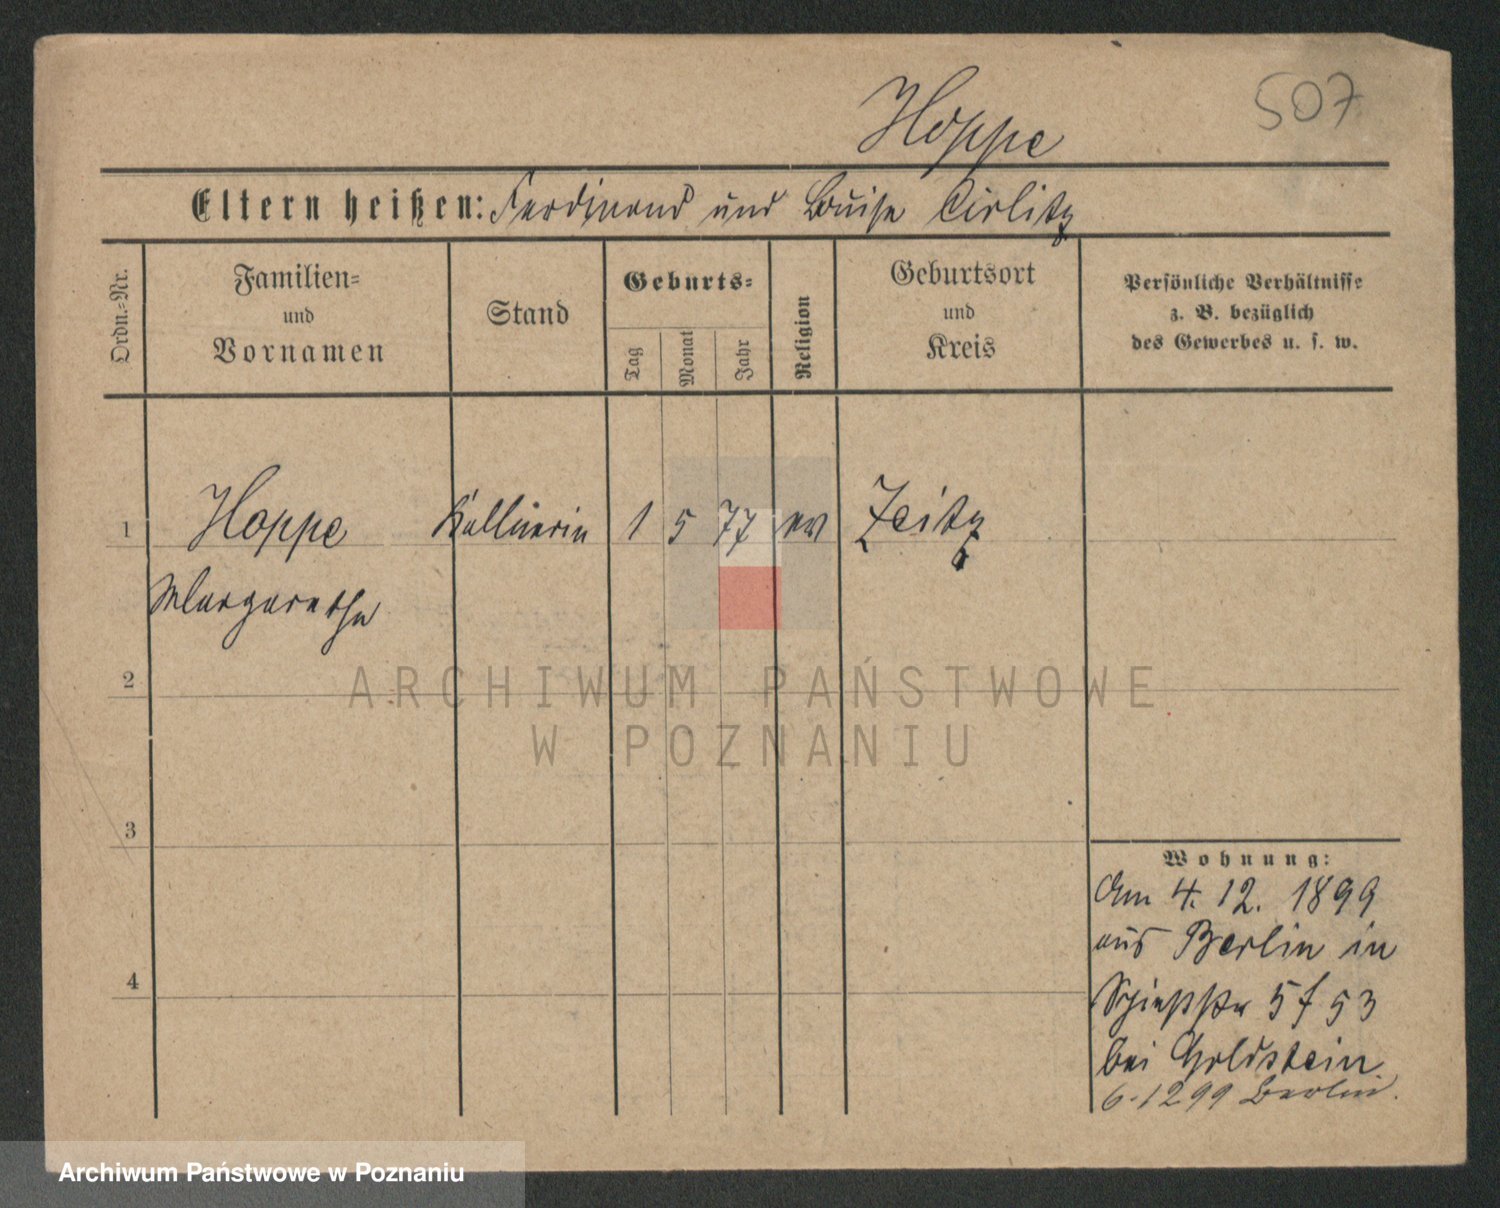 Hoppe 507
Eltern heißen: Ferdinand und Louise Cirlitz
Ordn.-Nr.
Familien-
und
Vornamen
Stand
Geburts-
Tag
Monat
Jahr
Religion
Geburtsort
und
Kreis
Persönliche Verhältnisse
z. B. bezüglich
des Gewerbes u. s. w.
1 Hoppe Kellnerin 1 5 77 ev Zeitz
Margarethe
2
ARCHIWUM PAŃSTWOWE
W POZNANIU
3
4
Wohnung:
Am 4. 12. 1899
aus Berlin in
5 53
bei Goldstein
6.1299 Berlin.
Archiwum Państwowe w Poznaniu